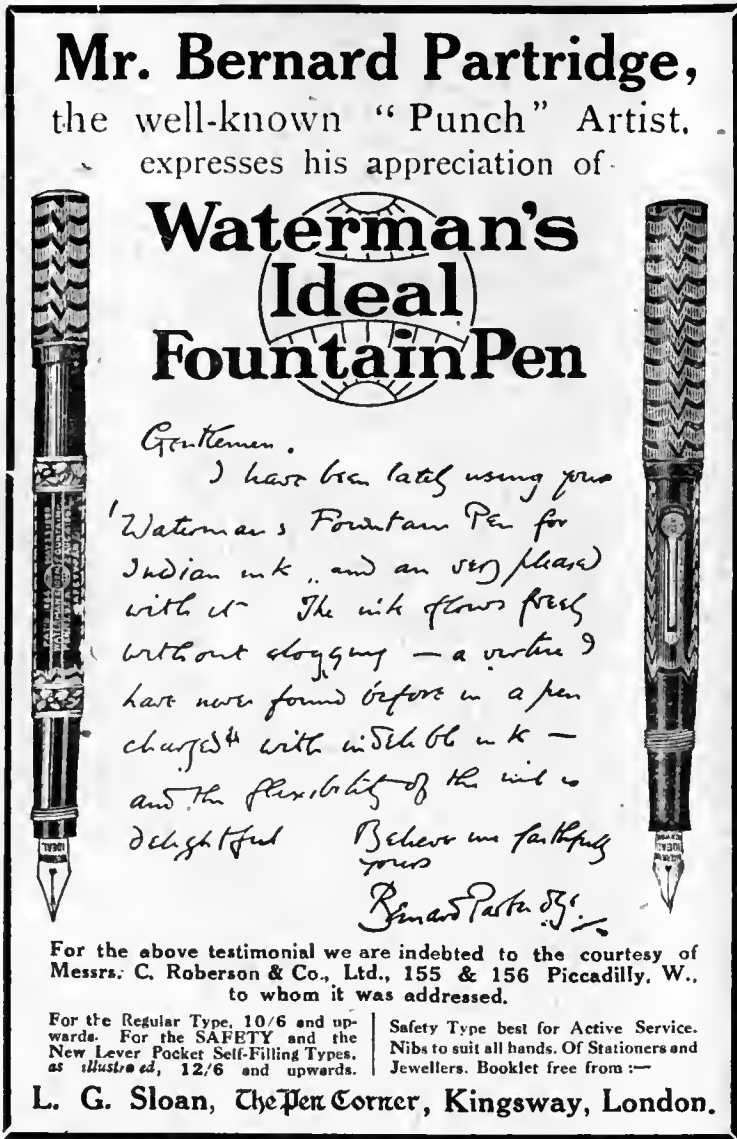 Mr. Bernard Partridge,
the well-known "Punch" Artist,
expresses his appreciation of
Waterman's
Ideal
Fountain Pen
Gentlemen.
I have been lately using your
'Waterman's Fountain Pen for
Indian ink„ and am very pleased
with it The ink flows freely
without clogging — a virtue I
have never found before in a pen
charged with indelible ink —
and the flexibility of the nib is
delightful Believe me faithfully
yours
Bernard Partridge.
For the above testimonial we are indebted to the courtesy of
Messrs. C. Roberson & Co., Ltd., 155 & 156 Piccadilly, W.,
to whom it was addressed.
For the Regular Type, 10/6 and up-
wards. For the SAFETY and the
New Lever Pocket Self-Filling Types,
as illustrated, 12/6 and upwards.
Safety Type best for Active Service.
Nibs to suit all hands. Of Stationers and
Jewellers. Booklet free from :—
L. G. Sloan, The Pen Corner, Kingsway, London.